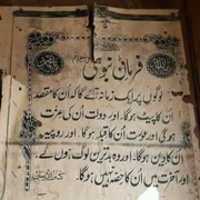 فرمانِ نبوی
لوگوں پر ایک زمانہ آئے گا کہ ان کا مقصد
اُن کا پیٹ ہوگا۔ اور دولت اُن کی عزت
ہوگی اور عورت اُن کا قبلہ ہوگا۔ اور روپیہ
اُن کا دین ہوگا۔ اور وہ بدترین لوگ ہوں گے۔
اور آخرت میں اُن کا حصّہ نہیں ہوگا۔